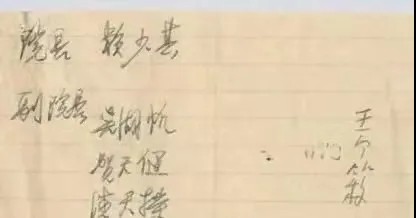 院長 赖少其
副院長 吴湖帆
贺天健
潘天
王个簃